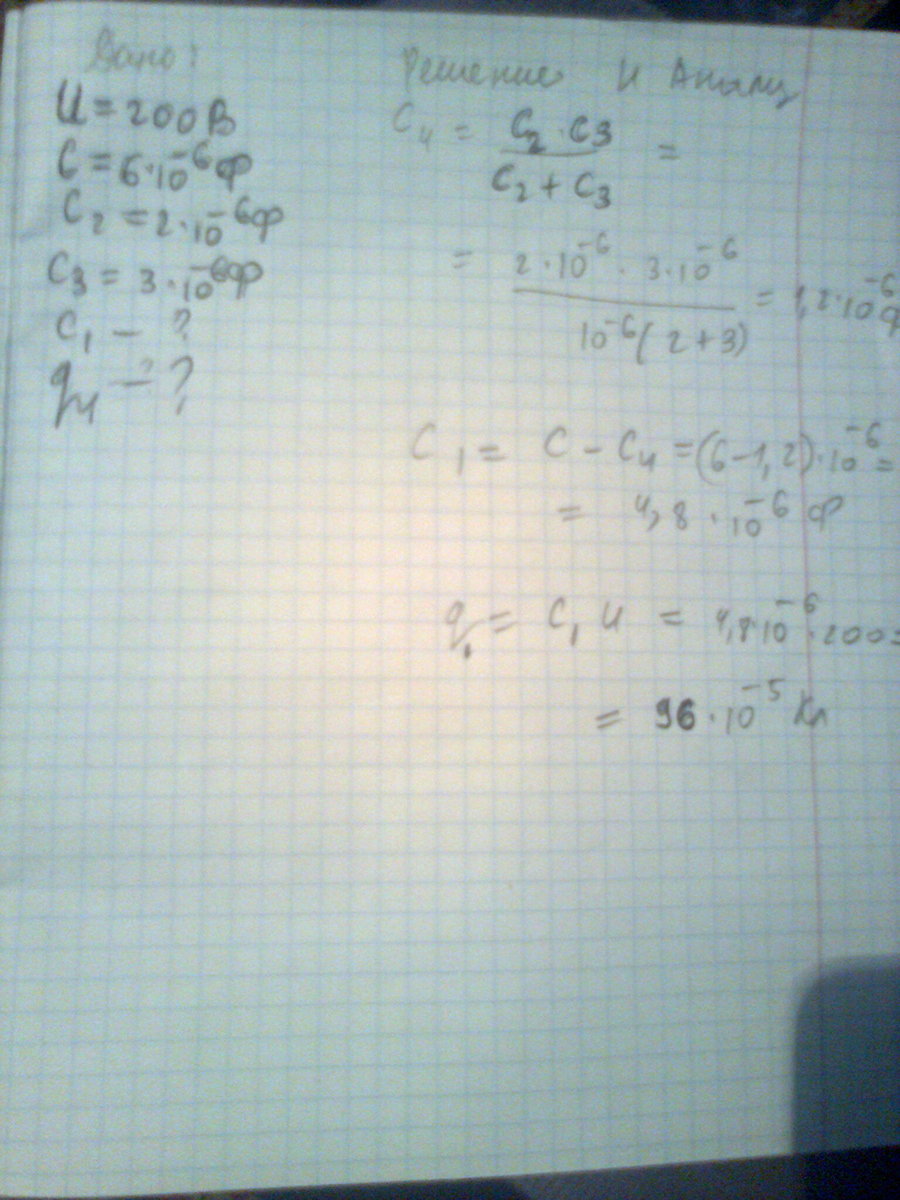 Дано:
U = 200В
C = 6·10⁻⁶ф
C₂ = 2·10⁻⁶ф
C₃ = 3·10⁻⁶ф
C₁ – ?
q₄ – ?
Решение и Анализ
C₄ = C₂ · C₃ / C₂ + C₃ =
= 2·10⁻⁶ · 3·10⁻⁶ / 10⁻⁶(2+3) = 1,2·10⁻⁶ф
C₁ = C – C₄ = (6–1,2)·10⁻⁶ =
= 4,8 · 10⁻⁶ ф
q₁ = C₁ U = 4,8·10⁻⁶·200=
= 96·10⁻⁵ Кл